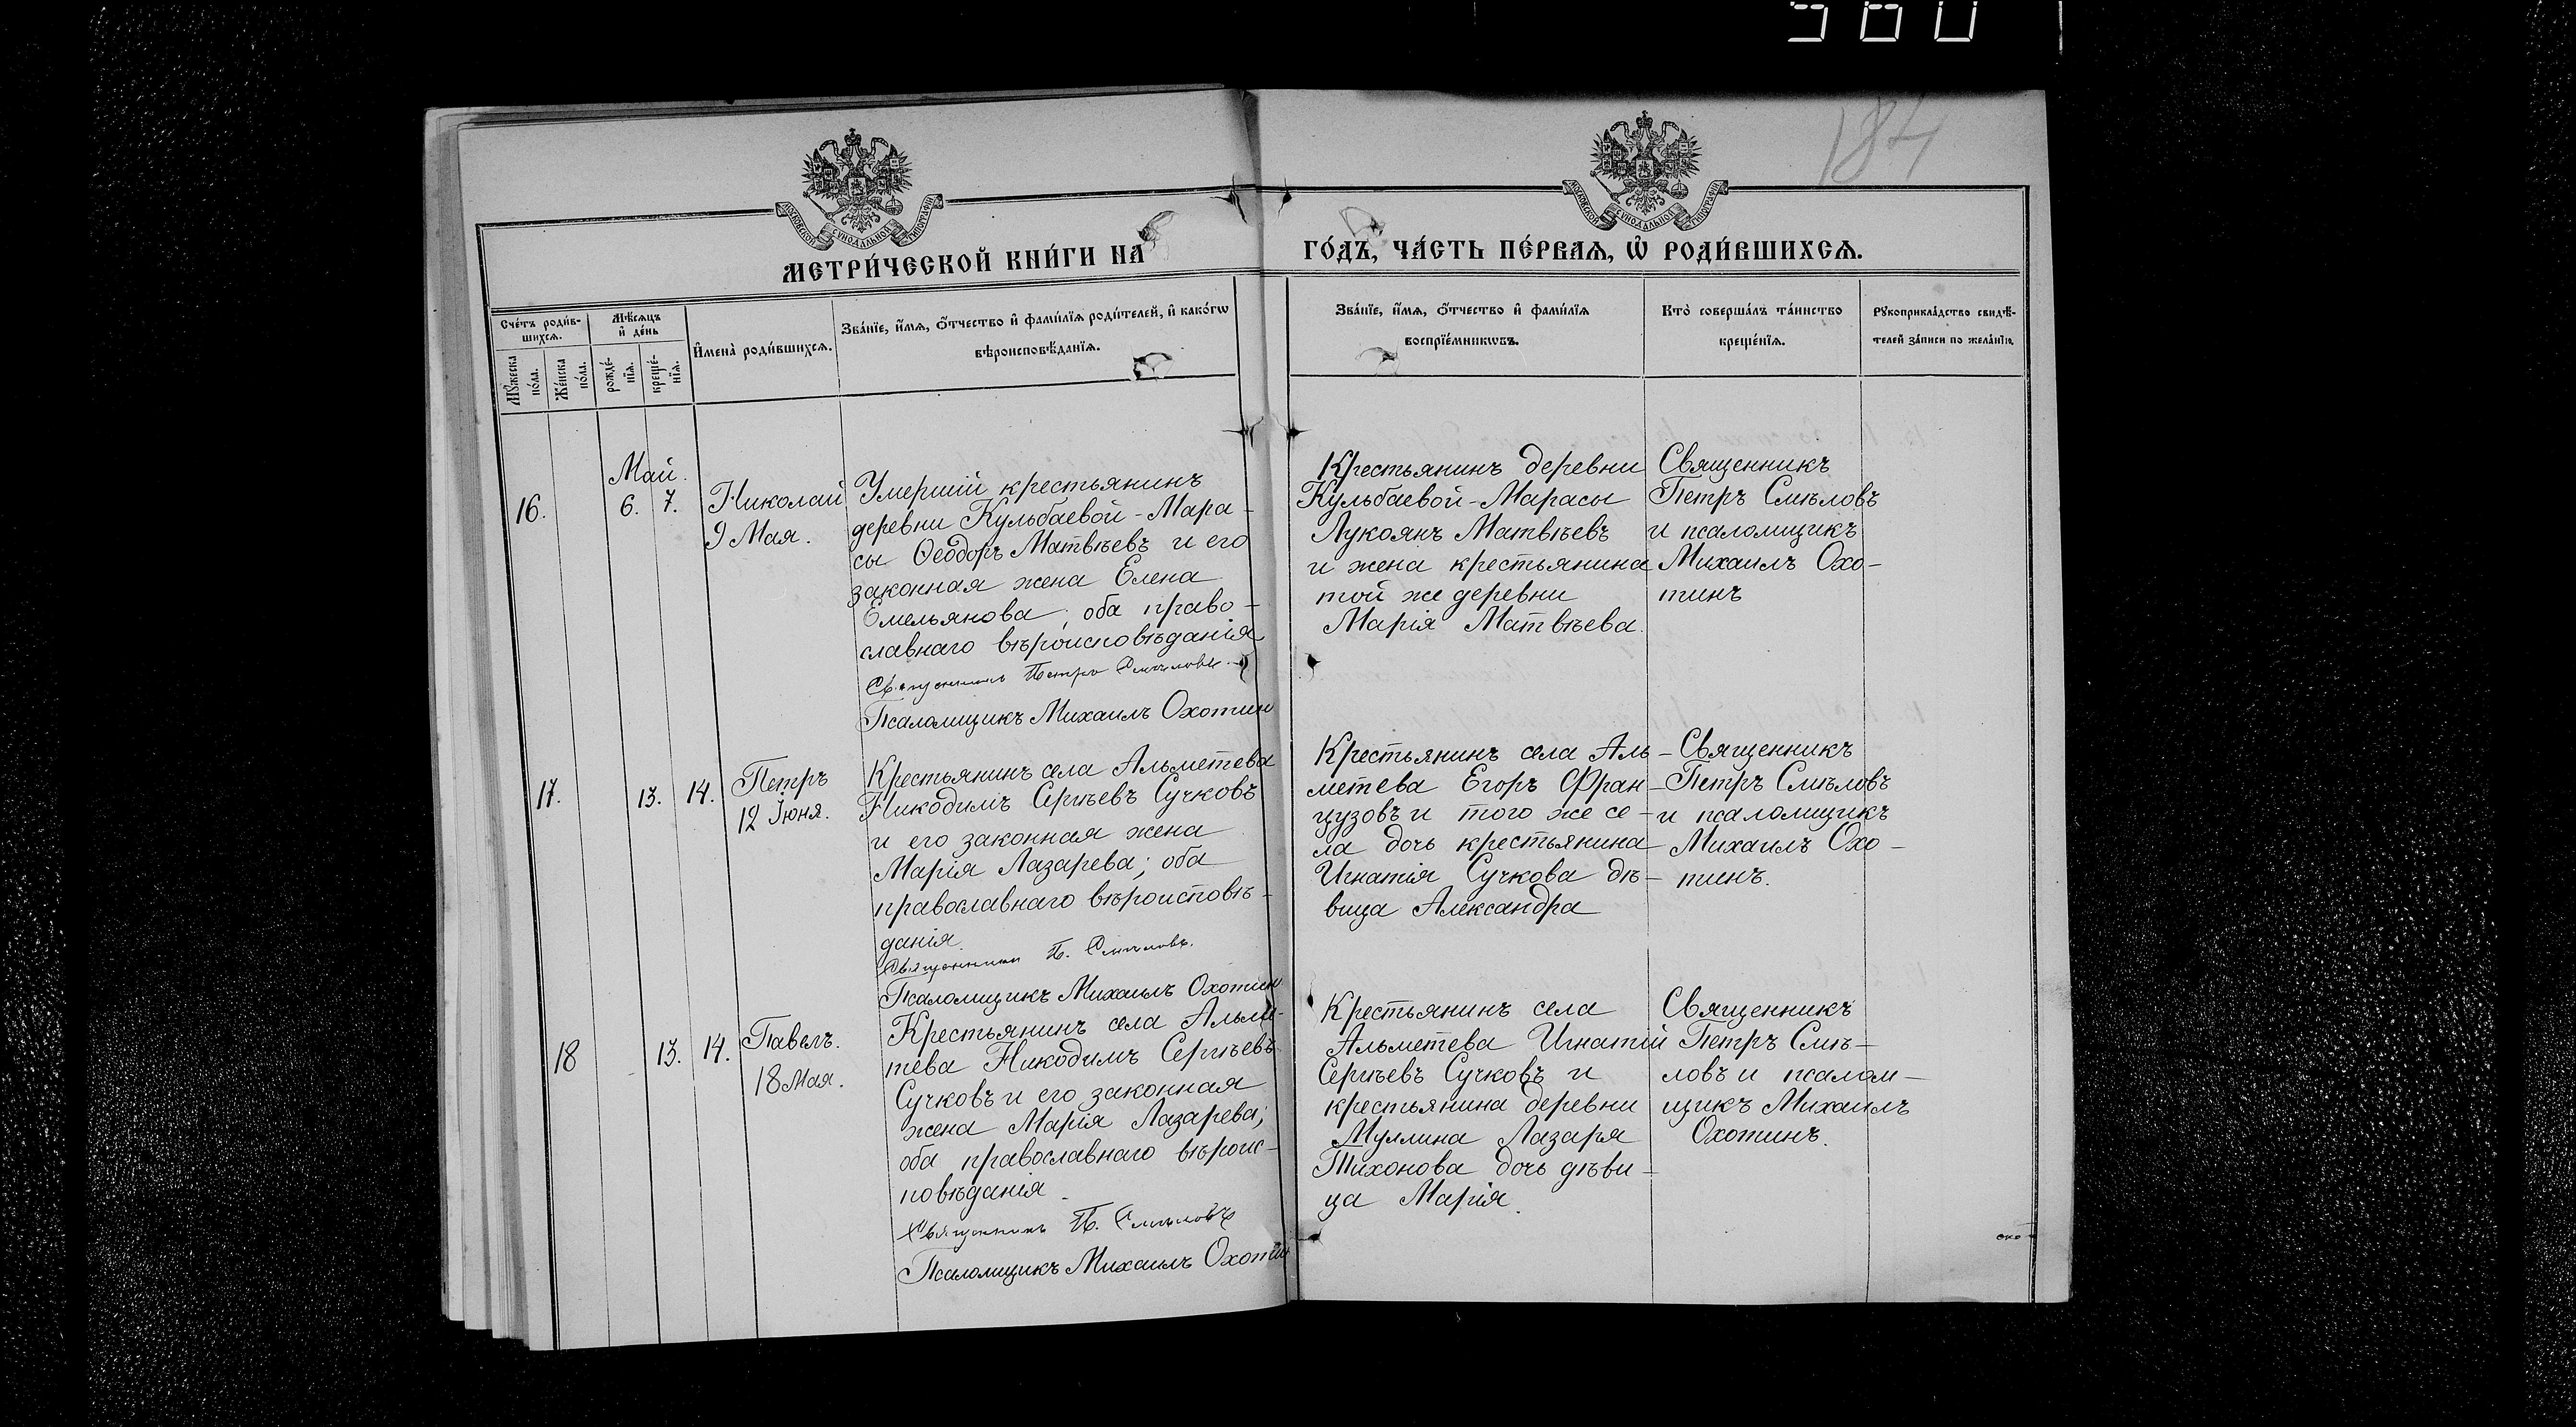 580
184
МОСКОВСКОЙ СѴНОДАЛЬНОЙ ТИПОГРАФІИ
МОСКОВСКОЙ СѴНОДАЛЬНОЙ ТИПОГРАФІИ
МЕТРИ́ЧЕСКОЙ КНИ́ГИ НА
ГО́ДЪ, ЧА́СТЬ ПЕ́РВАѦ, Ѽ РОДИ́ВШИХСѦ.
Сче́тъ роди́в-
шихсѧ.
Мꙋ́жеска
по́ла.
Же́нска
по́ла.
Мѣ́сѧцъ
и҆ де́нь
рожде́-
нїѧ.
креще́-
нїѧ.
И҆мена̀ роди́вшихсѧ.
Зва́нїе, и҆́мѧ, ѻ҆́тчество и҆ фами́лїѧ роди́телей, и҆ како́гѡ
вѣроисповѣ́данїѧ.
Зва́нїе, и҆́мѧ, ѻ҆́тчество и҆ фами́лїѧ
воспрїе́мникѡвъ.
Кто̀ соверша́лъ та́инство
креще́нїѧ.
Рꙋкоприкла́дство свидѣ́-
телей за́писи по жела́нїю.
16.
Май.
6. 7.
Николай
9 Мая.
Умершій крестьянинъ
деревни Кульбаевой-Мара-
сы Ѳеодоръ Матвѣевъ и его
законная жена Елена
Емельянова, оба право-
славнаго вѣроисповѣданія
Священникъ Петръ Смѣловъ.
Псаломщикъ Михаилъ Охотин
Крестьянинъ деревни
Кульбаевой-Марасы
Лукоянъ Матвѣевъ
и жена крестьянина
той же деревни
Марія Матвѣева.
Священникъ
Петръ Смѣловъ
и псаломщикъ
Михаилъ Охо-
тинъ
17.
13. 14.
Петръ
12 Іюня.
Крестьянинъ села Альметева
Никодимъ Сергѣевъ Сучковъ
и его законная жена
Марія Лазарева; оба
православнаго вѣроисповѣ-
данія.
Священникъ П. Смѣловъ.
Псаломщикъ Михаилъ Охотин
Крестьянинъ села Аль-
метева Егоръ Фран-
цузовъ и того же се-
ла дочь крестьянина
Игнатія Сучкова дѣ-
вица Александра
Священникъ
Петръ Смѣловъ
и псаломщикъ
Михаилъ Охо-
тинъ.
18
13. 14.
Павелъ.
18 Мая.
Крестьянинъ села Альме-
тева Никодимъ Сергѣевъ
Сучковъ и его законная
жена Марія Лазарева;
оба православнаго вѣроис-
повѣданія.
Священникъ П. Смѣловъ
Псаломщикъ Михаилъ Охотин
Крестьянинъ села
Альметева Игнатій
Сергѣевъ Сучковъ и
крестьянина деревни
Муллина Лазаря
Тихонова дочь дѣви-
ца Марія.
Священникъ
Петръ Смѣ-
ловъ и псалом-
щикъ Михаилъ
Охотинъ.